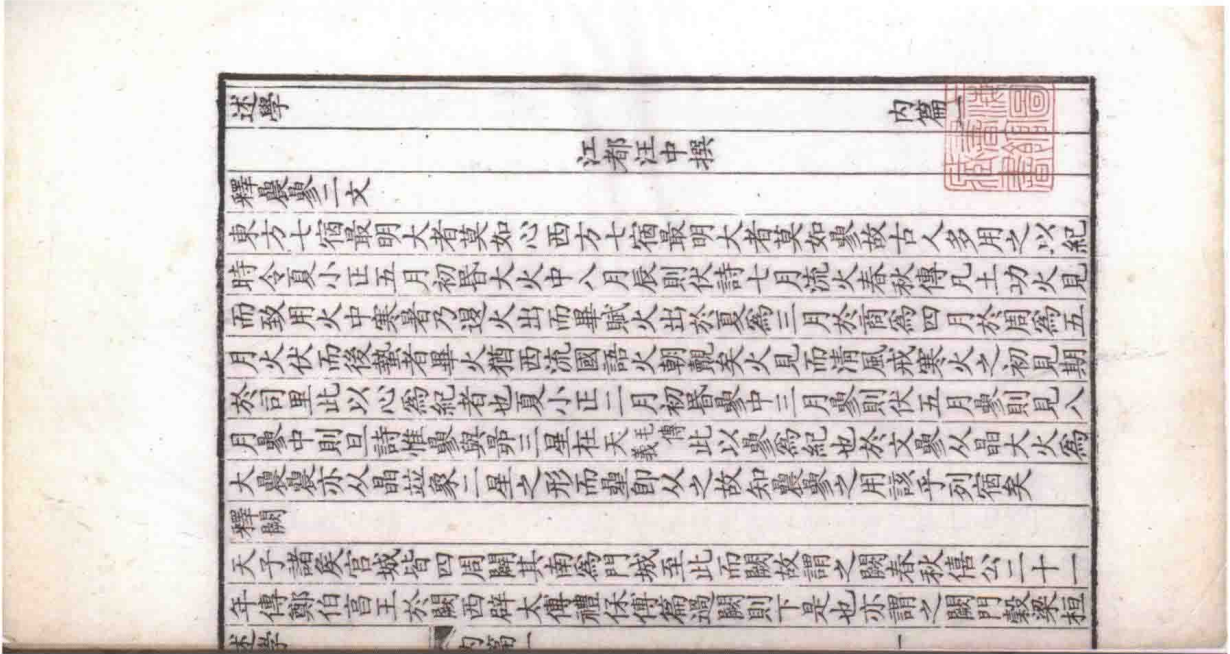 述學 內篇一
江都汪中撰
釋曟曑二文
東方七宿最明大者莫如心西方七宿最明大者莫如曑故古人多用之以紀
時令夏小正五月初昏大火中八月辰則伏詩七月流火春秋傳凡土功火見
而致用火中寒暑乃退火出而畢賦火出於夏爲三月於商爲四月於周爲五
月火伏而後蟄者畢火猶西流國語火朝覿矣火見而淸風戒寒火之初見期
於司里此以心爲紀者也夏小正二月初昏曑中三月曑則伏五月曑則見八
月曑中則旦詩惟曑與昴三星在天毛傳義此以曑爲紀也於文曑从晶大火爲
大曟曟亦从晶竝象二星之形而曐卽从之故知曟曑之用該乎列宿矣
釋闕
天子諸矦宮城皆四周闕其南爲門城至此而闕故謂之闕春秋僖公二十一
年傳鄭伯亯王於闕西辟太傅禮保傅篇過闕則下是也亦謂之闕門穀梁桓
述學 內篇一 一